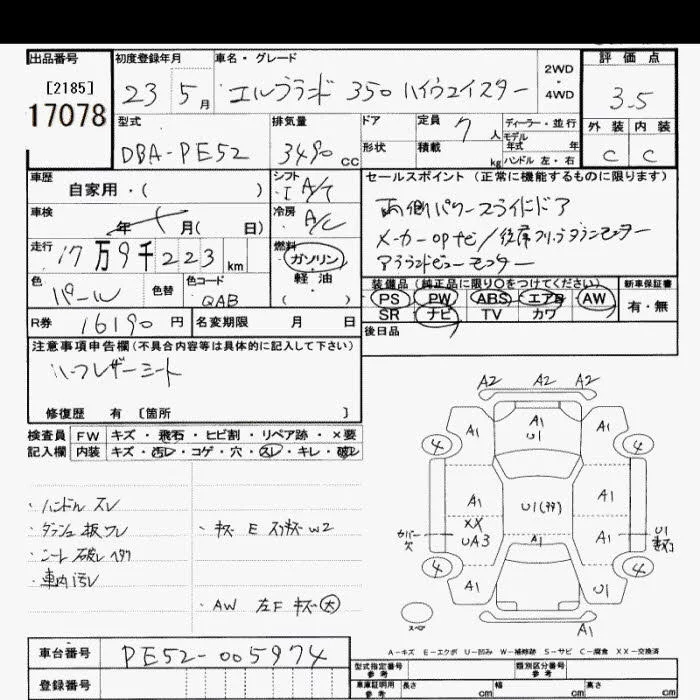 出品番号
[2185]
17078
初度登録年月
23 5月
車名・グレード
エルグランド 350 ハイウェイスター
2WD
・
4WD
評価点
3.5
外装 内装
C C
型式
DBA-PE52
排気量
3490 cc
ドア
形状
定員 7 人
積載 kg
ディーラー・並行
モデル
年式 年
ハンドル 左・右
車歴
自家用・( )
シフト
I A/T
セールスポイント (正常に機能するものに限ります)
両側パワースライドドア
メーカーopナビ/後席フリップダウンモニター
アラウンドビューモニター
車検
年 月( 日)
冷房
A/C
走行
17万9千223 km
燃料
ガソリン
・
軽油
・
( )
色
パール
色替
色コード
QAB
装備品 (純正品に限り○をつけてください)
PS PW ABS エアB AW
SR ナビ TV カワ
新車保証書
有・無
R券 16190 円
名変期限 月 日
後日品
注意事項申告欄 (不具合内容等は具体的に記入して下さい)
ハーフレザーシート
修復歴 有 [箇所 ]
検査員 FW キズ・飛石・ヒビ割・リペア跡・×要
記入欄 内装 キズ・汚レ・コゲ・穴・スレ・キレ・破レ
・ハンドル スレ
・ダッシュ板ワレ
・シート破レ ヘタリ
・車内汚レ
・キズ E スリキズ W2
・AW 左F キズ大
A2 A2 A2
A1 A1 U1 A1
4 4
A1 U1 A1
XX
UA3 A1 A1
カバー欠
U1
4 4
A1 U1
スペア
A1
A-キズ E-エクボ U-凹み W-補修跡 S-サビ C-腐食 XX-交換済
車台番号 PE52-005974
登録番号
型式指定番号
参考
類別区分番号
参考
車庫証明用
参考
長さ cm 幅 cm 高さ cm